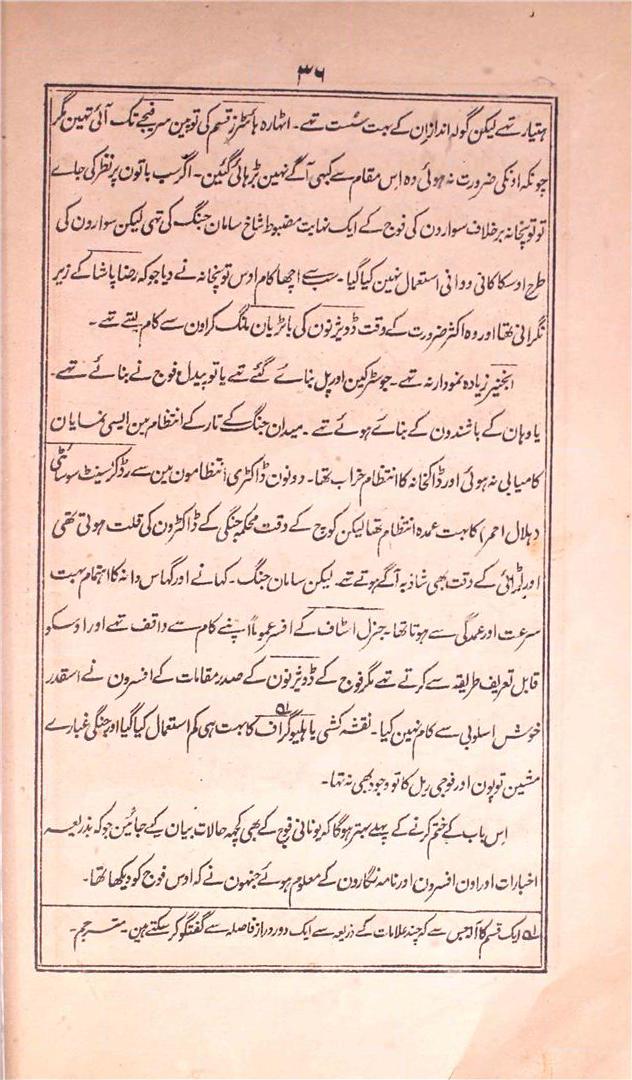 ۳۶
ہتیار تہے لیکن گولہ اندازان کے بہت سست تہے۔ اٹہارہ ہائٹزر قسم کی توپین سرفیجے تک آئی تہین مگر
چونکہ اونکی ضرورت نہ ہوئی وہ اس مقام سے کبہی آگے نہین بڑہائی گئین۔ اگر سب باتون پر نظر کی جاے
تو توپخانہ برخلاف سوارون کی فوج کے ایک نہایت مضبوط شاخ سامان جنگ کی تہی لیکن سوارون کی
طرح اوسکا کافی ووافی استعمال نہین کیا گیا۔ سب سے اچھا کام اوس توپخانہ نے دیا جو کہ رضا پاشا کے زیر
نگرانی تھا اور وہ اکثر ضرورت کے وقت ڈویژنون کی باٹریان مانگ کر اون سے کام لیتے تہے۔
انجنیر زیادہ نمودار نہ تہے۔ جو سڑکین اور پل بناے گئے تہے یا تو پیدل فوج نے بنائے تہے۔
یا وہان کے باشندون کے بنائے ہوئے تہے۔ میدان جنگ کے تار کے انتظام مین ایسی نمایان
کامیابی نہ ہوئی اور ڈاکخانہ کا انتظام خراب تھا۔ دونون ڈاکٹری انتظامون مین سے رڈکرسنٹ سوسائٹی
(ہلال احمر) کا بہت عمدہ انتظام تھا لیکن کوچ کے وقت محکمہ جنگی کے ڈاکٹرون کی قلت ہوتی تھی
اور لڑائی کے وقت بھی شاذ یہ آگے ہوتے تہے۔ لیکن سامان جنگ۔ کہانے اور گہاس دانہ کا اہتمام بہت
سرعت اور عمدگی سے ہوتا تھا۔ جنرل اسٹاف کے افسر عموماً اپنے کام سے واقف تہے اور اوسکو
قابل تعریف طریقہ سے کرتے تہے مگر فوج کے ڈویژنون کے صدر مقامات کے افسرون نے اسقدر
خوش اسلوبی سے کام نہین کیا۔ نقشہ کشی یا ہلیوگراف ۵۱ کا بہت ہی کم استعمال کیا گیا اور جنگی غبارے
مشین توپون اور فوجی ریل کا تو وجود بھی نہ تہا۔
اس باب کے ختم کرنے کے پہلے بہتر ہوگا کہ یونانی فوج کے بھی کچھہ حالات بیان کیے جائین جو کہ بذریعہ
اخبارات اور اون افسرون اور نامہ نگارون کے معلوم ہوئے جنہون نے کہ اوس فوج کو دیکھا تھا۔
۵۱ ایک قسم کا آلہ جس سے کہ چند علامات کے ذریعہ سے ایک دور دراز فاصلہ سے گفتگو کر سکتے ہین۔ مترجم۔